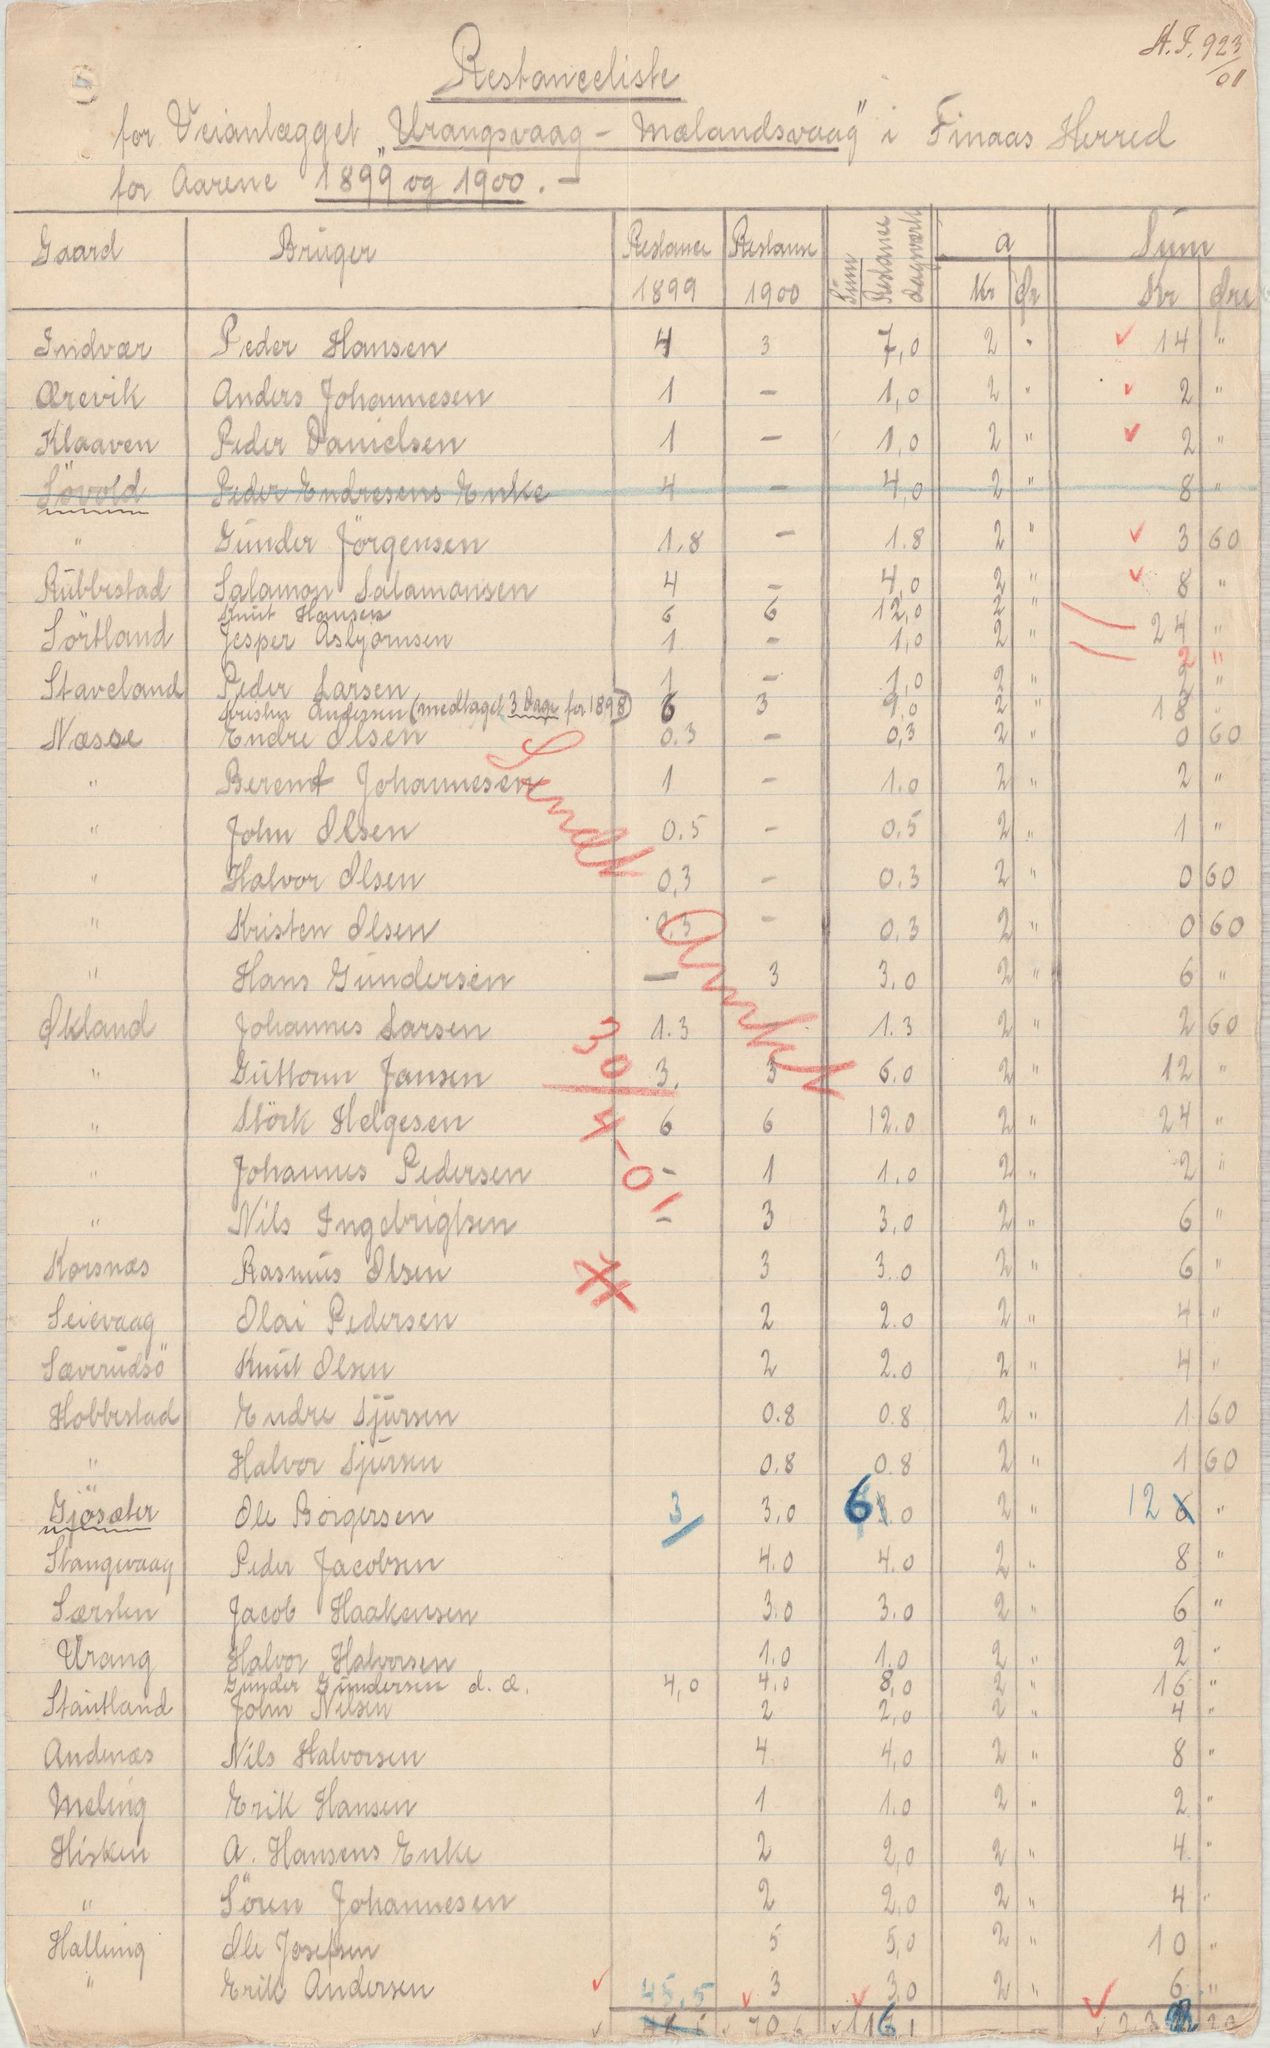 A.F. 923/01
Restanceliste
for Veianlægget "Urangsvaag - Mælandsvaag" i Finaas Herred
for Aarene 1899 og 1900. -
Gaard Brüger Restance 1899 Restance 1900 Süm Restance dagsværk a Kr Ør Süm Kr Øre
Indvær Peder Hansen 4 3 7,0 2 " 14 "
Ærevik Anders Johannesen 1 - 1,0 2 " 2 "
Klaaven Peder Danielsen 1 - 1,0 2 " 2 "
Søvold Peder Endresens Enke 4 - 4,0 2 " 8 "
" Günder Jörgensen 1.8 - 1.8 2 " 3 60
Rübbestad Salamon Salamonsen 4 - 4,0 2 " 8 "
Knut Hansen 6 6 12,0 2 " 24 "
Sörtland Jesper Asbjörnsen 1 - 1,0 2 " 2 "
Staveland Peder Larsen 1 - 1,0 2 " 2 "
Kristen Andersen (medtaget 3 Dage for 1898) 6 3 9,0 2 " 18 "
Næsse Endre Olsen 0.3 - 0,3 2 " 0 60
" Berent Johannesen 1 - 1.0 2 " 2 "
" John Olsen 0.5 - 0.5 2 " 1 "
" Halvor Olsen 0,3 - 0.3 2 " 0 60
" Kristen Olsen 0,3 - 0,3 2 " 0 60
" Hans Gündersen - 3 3,0 2 " 6 "
Økland Johannes Larsen 1.3 1.3 2 " 2 60
" Güttorm Jansen 3. 3 6.0 2 " 12 "
" Störk Helgesen 6 6 12.0 2 " 24 "
" Johannes Pedersen - 1 1.0 2 " 2 "
" Nils Ingebrigtsen - 3 3,0 2 " 6 "
Sendt Amtet
30/4-01
Korsnæs Rasmüs Olsen 3 3.0 2 " 6 "
Seievaag Olai Pedersen 2 2.0 2 " 4 "
Sæverüdsö Knüt Olsen 2 2.0 2 " 4 "
Hobbestad Endre Sjürsen 0.8 0.8 2 " 1 60
" Halvor Sjürsen 0,8 0.8 2 " 1 60
Gjösæter Ole Borgersen 3 3,0 6 2 " 12 "
Stangevaag Peder Jacobsen 4.0 4.0 2 " 8 "
Særsten Jacob Haakensen 3.0 3.0 2 " 6 "
Urang Halvor Halvorsen 1.0 1.0 2 2 "
Günder Gündersen d. æ. 4,0 4.0 8,0 2 " 16 "
Staütland John Nilsen 2 2,0 2 " 4 "
Andenæs Nils Halvorsen 4 4,0 2 " 8 "
Meling Erik Hansen 1 1.0 2 " 2 "
Hisken A. Hansens Enke 2 2,0 2 " 4 "
" Sören Johannesen 2 2,0 2 " 4 "
Halling Ole Josefsen 5 5,0 2 " 10 "
" Erik Andersen 3 3,0 2 " 6 "
45,5 70 6 116 1 20